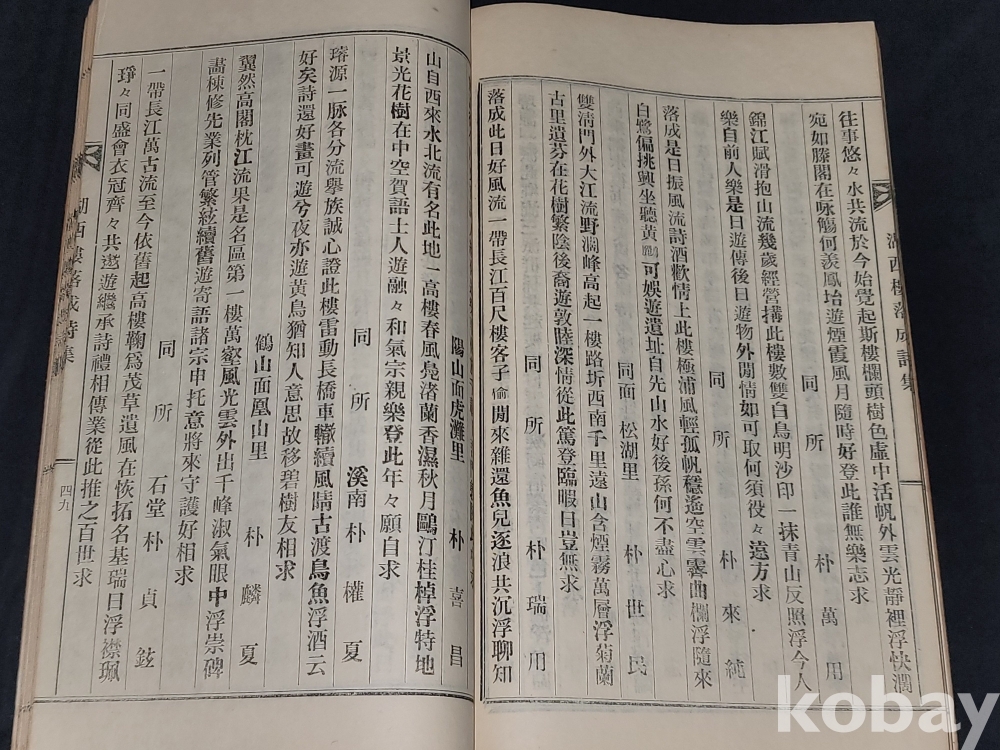 湖西樓落成詩集
往事悠々水共流於今始覺起斯樓欄頭樹色虛中活帆外雲光靜裡浮快濶
宛如滕閣在咏觴何羨鳳坮遊煙霞風月隨時好登此誰無樂志求
同所 朴萬用
錦江賦滑抱山流幾歲經營搆此樓數雙白鳥明沙印一抹青山反照浮今人
樂自前人樂是日遊傳後日遊物外閒情如可取何須役々遠方求
同所 朴來純
落成是日振風流詩酒歡情上此樓極浦風輕孤帆穩遙空雲霽曲欄浮隨來
白鷺偏挑興坐聽黃鸝可娛遊遺址自先山水好後孫何不盡心求
同面松湖里 朴世民
雙淸門外大江流野濶峰高起一樓路圻西南千里遠山含煙霧萬層浮菊蘭
古里遺芬在花樹繁陰後裔遊敦睦深情從此篤登臨暇日豈無求
同所 朴瑞用
落成此日好風流一帶長江百尺樓客子偷閒來雜還魚兒逐浪共沉浮聊知
陽山面虎灘里 朴喜昌
山自西來水北流有名此地一高樓春風鳧渚蘭香濕秋月鷗汀桂棹浮特地
景光花樹在中空賀語士人遊融々和氣宗親樂登此年々願自求
同所 溪南朴權夏
璿源一脉各分流擧族誠心證此樓雷動長橋車轍續風晴古渡鳥魚浮酒云
好矣詩還好晝可遊兮夜亦遊黃鳥猶知人意思故移碧樹友相求
鶴山面凰山里 朴麟夏
翼然高閣枕江流果是名區第一樓萬壑風光雲外出千峰淑氣眼中浮崇碑
畵棟修先業列管繁絃續舊遊寄語諸宗申托意將來守護好相求
同所 石堂朴貞鉉
一帶長江萬古流至今依舊起高樓鞠爲茂草遺風在恢拓名基瑞日浮襟珮
琤々同盛會衣冠齊々共遨遊繼承詩禮相傳業從此推之百世求
湖西樓落成詩集
四九
kobay